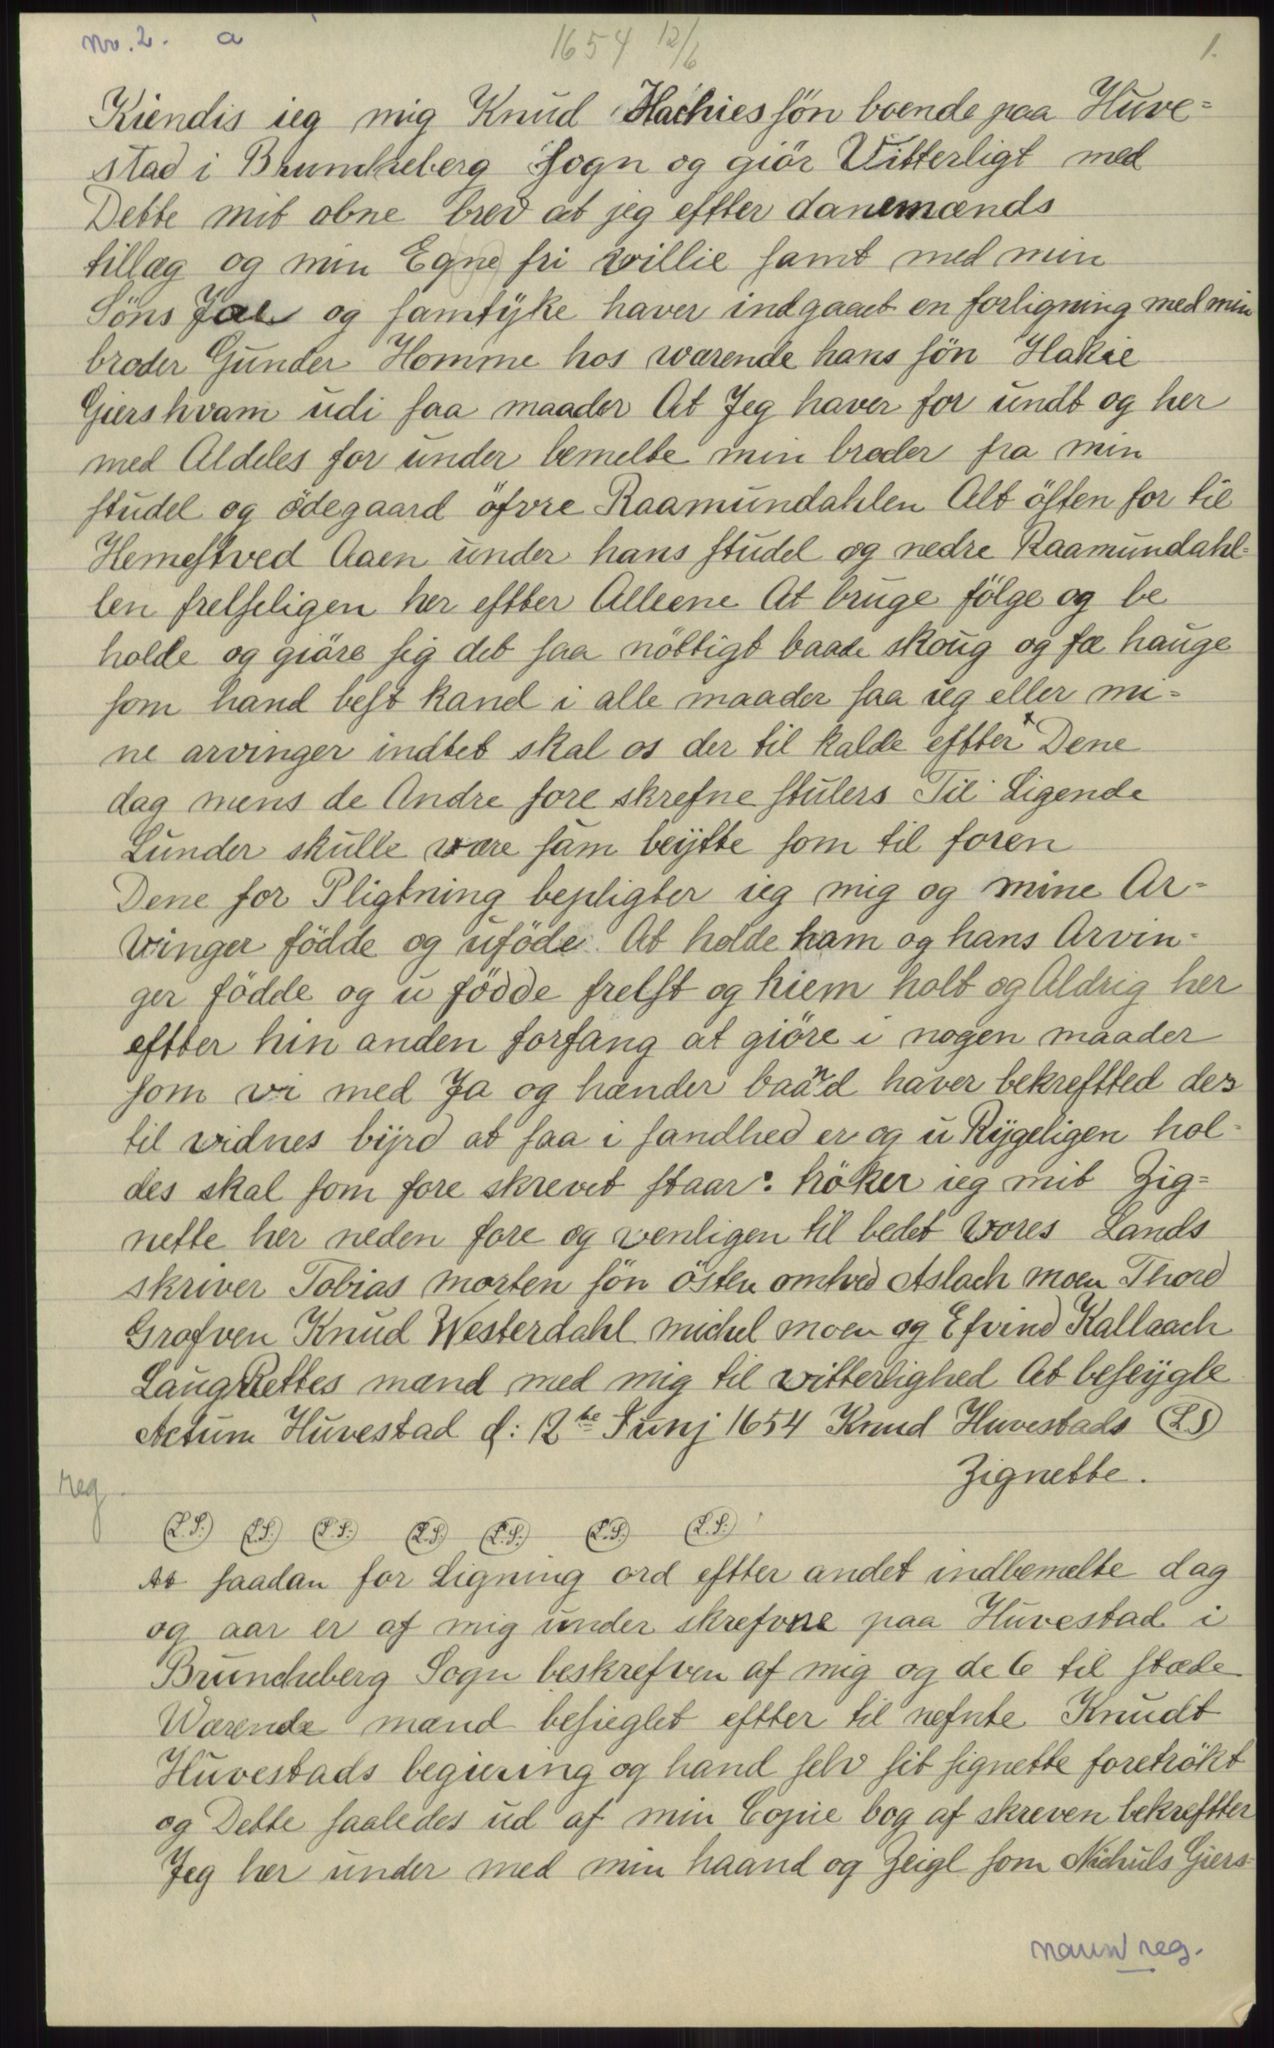 nv. 2. a 1654 12/6 1.
Kiendis ieg mig Knud Hachies søn boende paa Huve=
stad i Brunckeberg Sogn og giör Vitterligt med
Dette mit obne brev at jeg effter danemænds
tillæg og min Egne fri willie samt med min
Söns Jae og samtÿke haver indgaaet en forligning med min
broder Gunder Homme hos wærende hans sön Hakie
Giershvam udi saa maader At Jeg haver for undt og her
med Aldeles for under bemelte min broder fra min
studel og ödegaard öfvre Raamundahlen Alt östen for til
Hemestved Aaen under hans studel og nedre Raamundahl=
len frelseligen her effter Alleene At bruge fölge og be
holde og giöre sig det saa nöttigt baade skoug og fæ hauge
som hand best kand i alle maader saa ieg eller mi=
ne arvinger indtet skal os der til kalde effter x Dene
dag mens de Andre fore skrefne stulers Til Ligende
Lunder skulle være sam beÿtte som til foren
Dene for Pligtning bepligter ieg mig og mine Ar=
vinger födde og uföde At holde ham og hans Arvin=
ger födde og u födde frelst og hiem holt og Aldrig her
effter hin anden forfang at giöre i nogen maader
som vi med Ja og hænder baand haver bekreffted des
til vidnes bÿrd at saa i sandhed er og u Rÿgeligen hol=
des skal som fore skrevet staar: tröker ieg mit Zig=
nette her neden fore og venligen til bedet Vores Lands
skriver Tobias morten sön östen omtved Aslach moen Thord
Grofven Knud Westerdahl michel moen og Efvind Kallaach
LaugRettes mænd med mig til vitterlighed At beseÿgle
Actum Huvestad d: 12te Junj 1654 Knud Huvestads (L.S)
Zignette.
reg.
(L.S:) (L.S:) (L.S:) (L.S:) (L.S:) (L.S:) (L.S:)
At saadan for Ligning ord effter andet indbemelte dag
og aar er af mig under skrefvne paa Huvestad i
Brunckeberg Sogn beskrefven af mig og de 6 til stæde
Wærende mænd besieglet effter til nefnte Knudt
Huvestads begiering og hand selv sit signette foretrökt
og Dette saaledes ud af min Copie bog af skreven bekreffter
Jeg her under med min haand og Zeigl som Nichuls Giers=
navn reg.